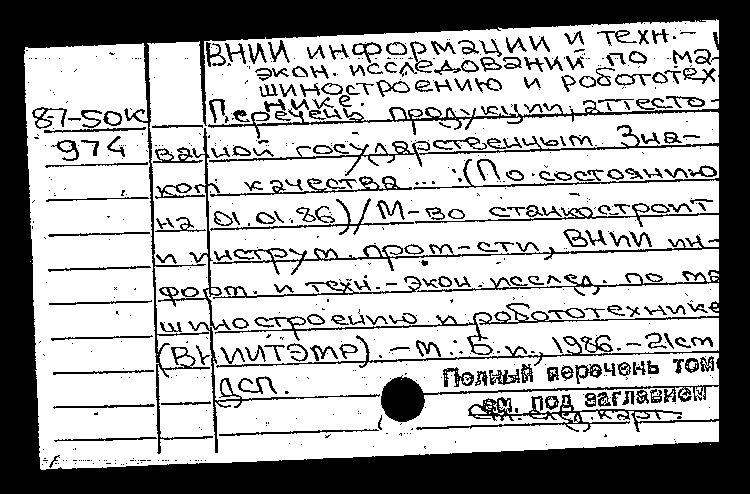 ВНИИ информации и техн.-
экон. исследований по ма-
шиностроению и робототех-
нике.
87-50К Перечень продукции, аттесто-
974 ванной государственным Зна-
ком качества ... : (По состоянию
на 01.01.86) / М-во станкостроит
и инструм. пром-сти, ВНИИ ин-
форм. и техн.-экон. исслед. по ма
шиностроению и робототехнике
(ВНИИТЭМР). - М.: Б.и., 1986. - 21см
ДСП.
Полный перечень томо
см. под заглавием
См. след. карт.